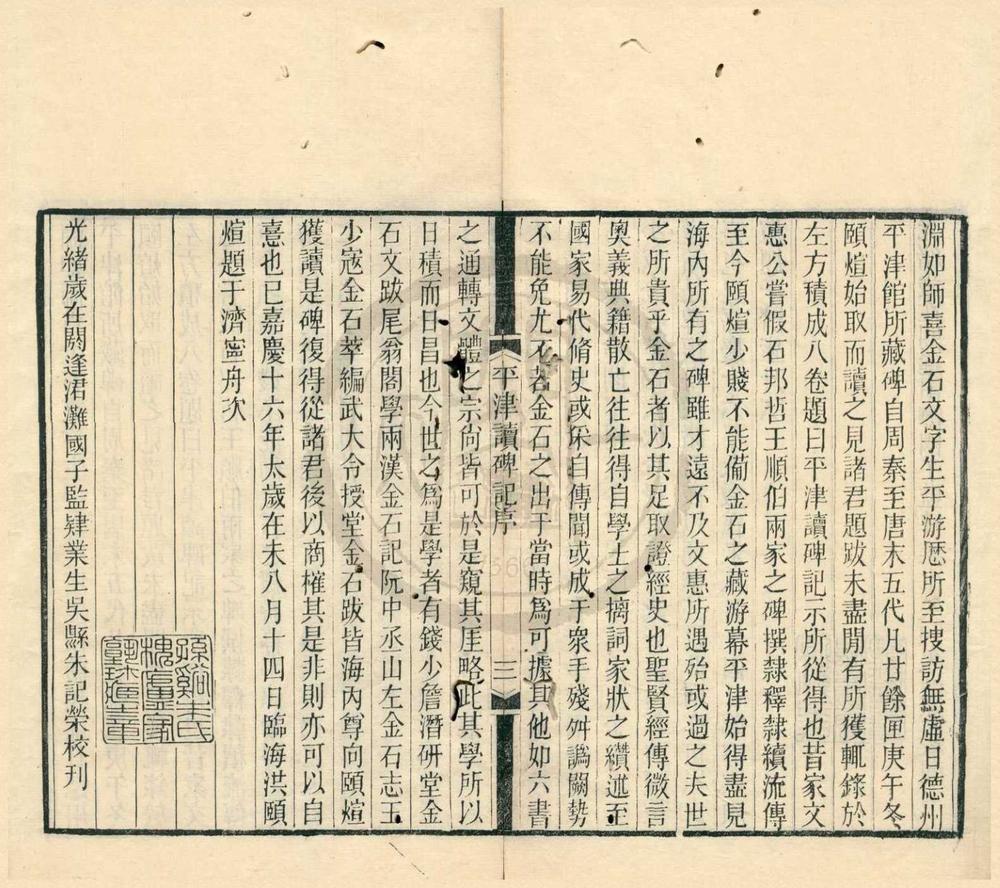 淵如師喜金石文字生平游歷所至搜訪無虛日德州
平津館所藏碑自周秦至唐末五代凡廿餘匣庚午冬
頤煊始取而讀之見諸君題跋未盡閒有所獲輒錄於
左方積成八卷題曰平津讀碑記示所從得也昔家文
惠公嘗假石邦哲王順伯兩家之碑撰隸釋隸續流傳
至今頤煊少賤不能備金石之藏游幕平津始得盡見
海內所有之碑雖才遠不及文惠所遇殆或過之夫世
之所貴乎金石者以其足取證經史也聖賢經傳微言
奧義典籍散亡往往得自學士之摛詞家狀之纘述至
國家易代脩史或采自傳聞或成于衆手殘舛譌闕勢
不能免尤不若金石之出于當時為可據其他如六書
平津讀碑記序 三
之通轉文體之宗尙皆可於是窺其厓略此其學所以
日積而日昌也今世之為是學者有錢少詹潛研堂金
石文跋尾翁閣學兩漢金石記阮中丞山左金石志王
少寇金石萃編武大令授堂金石跋皆海內尊向頤煊
獲讀是碑復得從諸君後以商榷其是非則亦可以自
憙也已嘉慶十六年太歲在未八月十四日臨海洪頤
煊題于濟甯舟次
光緒歲在閼逢涒灘國子監肄業生吳縣朱記榮校刊
孫谿朱氏
槐廬家
塾珠生章